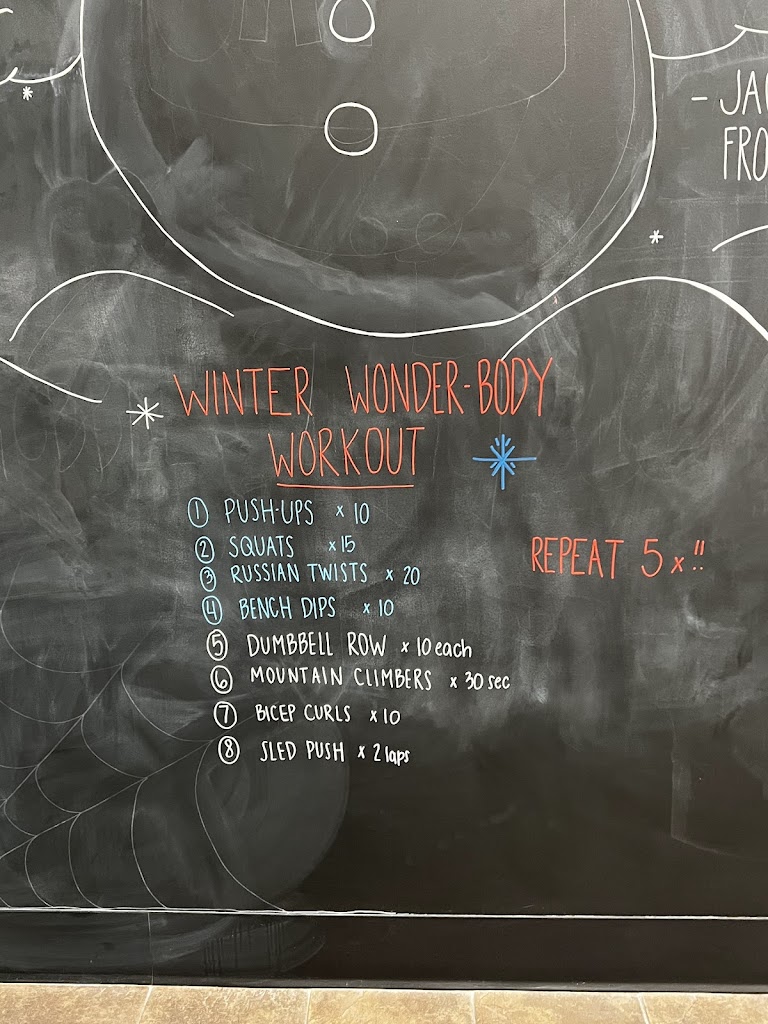 - JA
FRO
WINTER WONDER-BODY
WORKOUT
① PUSH-UPS x 10
② SQUATS x 15
③ RUSSIAN TWISTS x 20
④ BENCH DIPS x 10
⑤ DUMBBELL ROW x 10 each
⑥ MOUNTAIN CLIMBERS x 30 sec
⑦ BICEP CURLS x 10
⑧ SLED PUSH x 2 laps
REPEAT 5 x !!